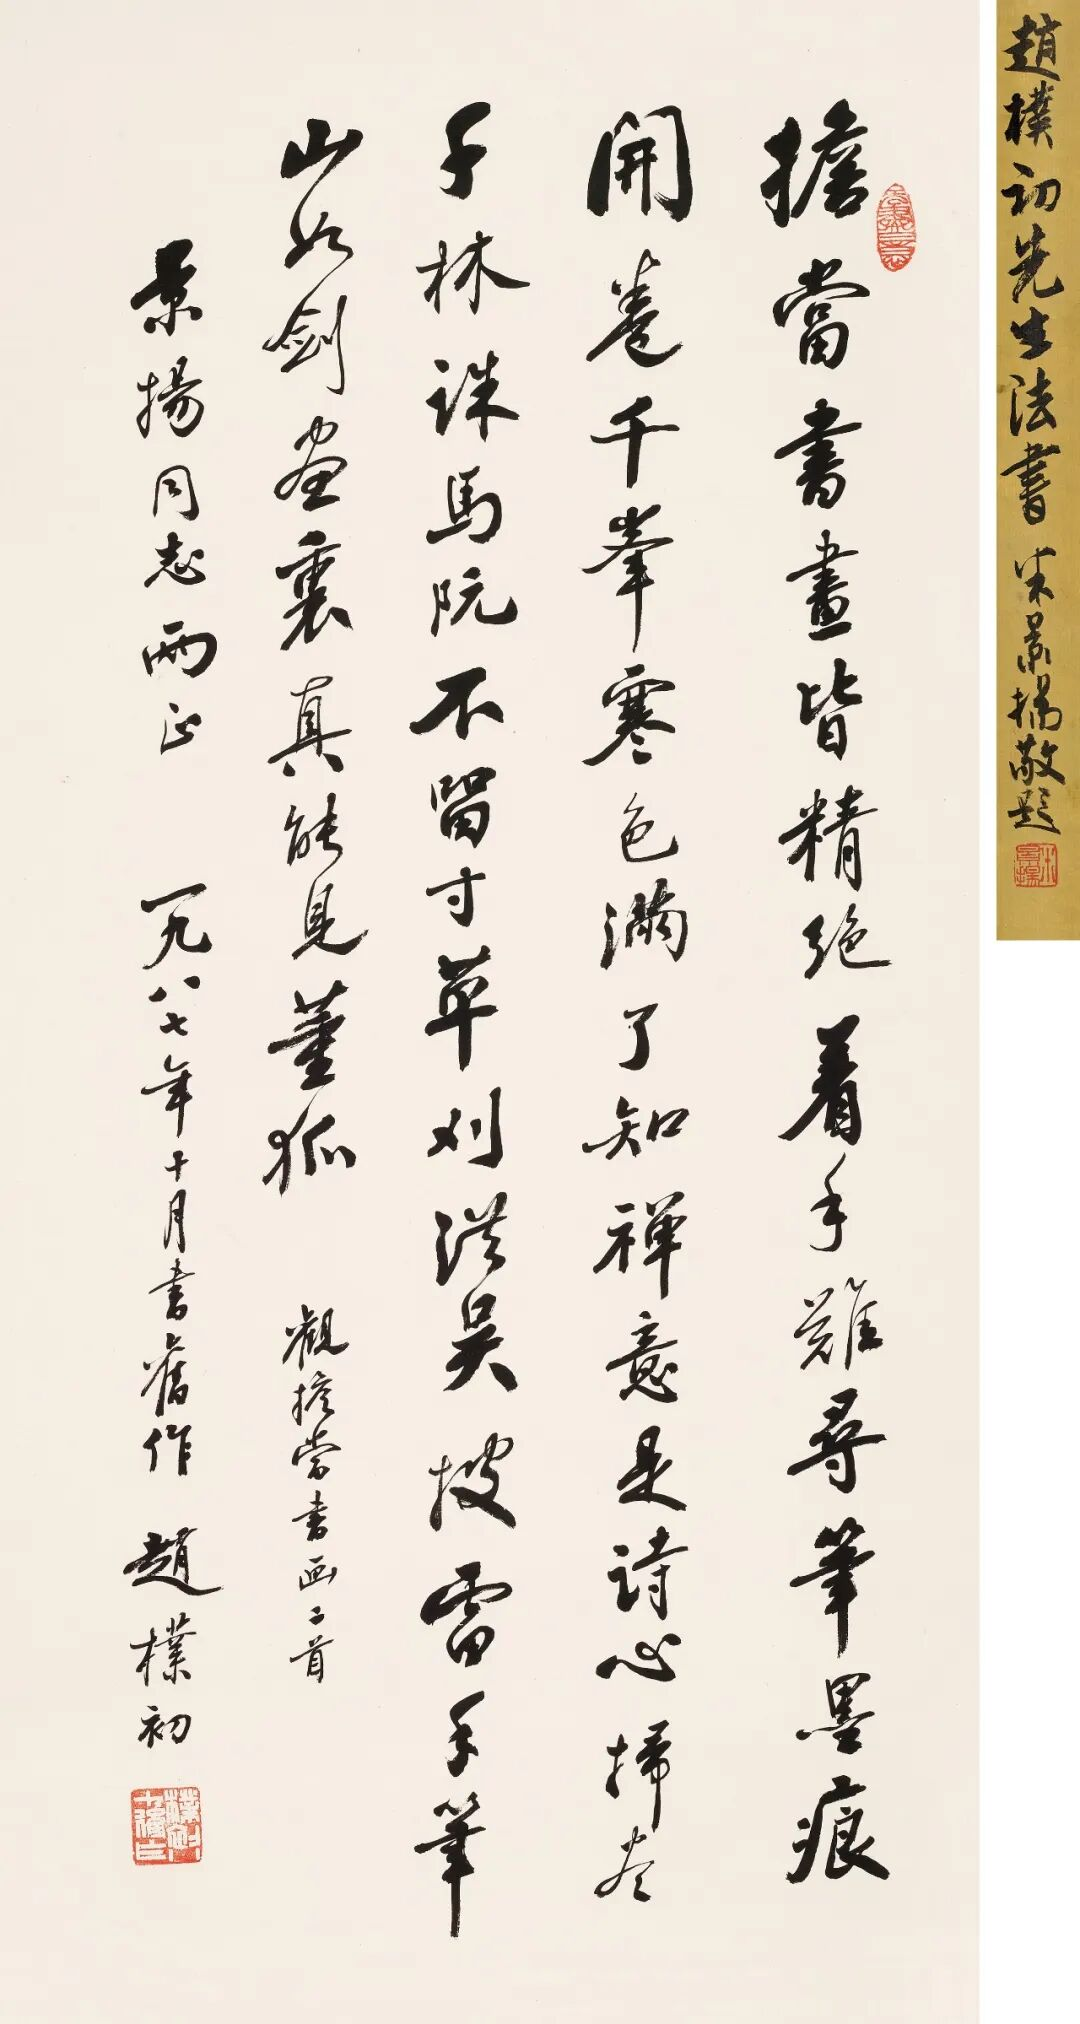 趙樸初先生法書　朱景揚敬題
擔當書畫皆精絕着手難尋筆墨痕
開卷千峯寒色滿了知禪意是詩心掃盡
千林誅馬阮不留寸草刈洪吳披雷手筆
山如劍画裏真能見董狐
觀擔當書画二首
景揚同志兩正　一九八七年十月書舊作　趙樸初